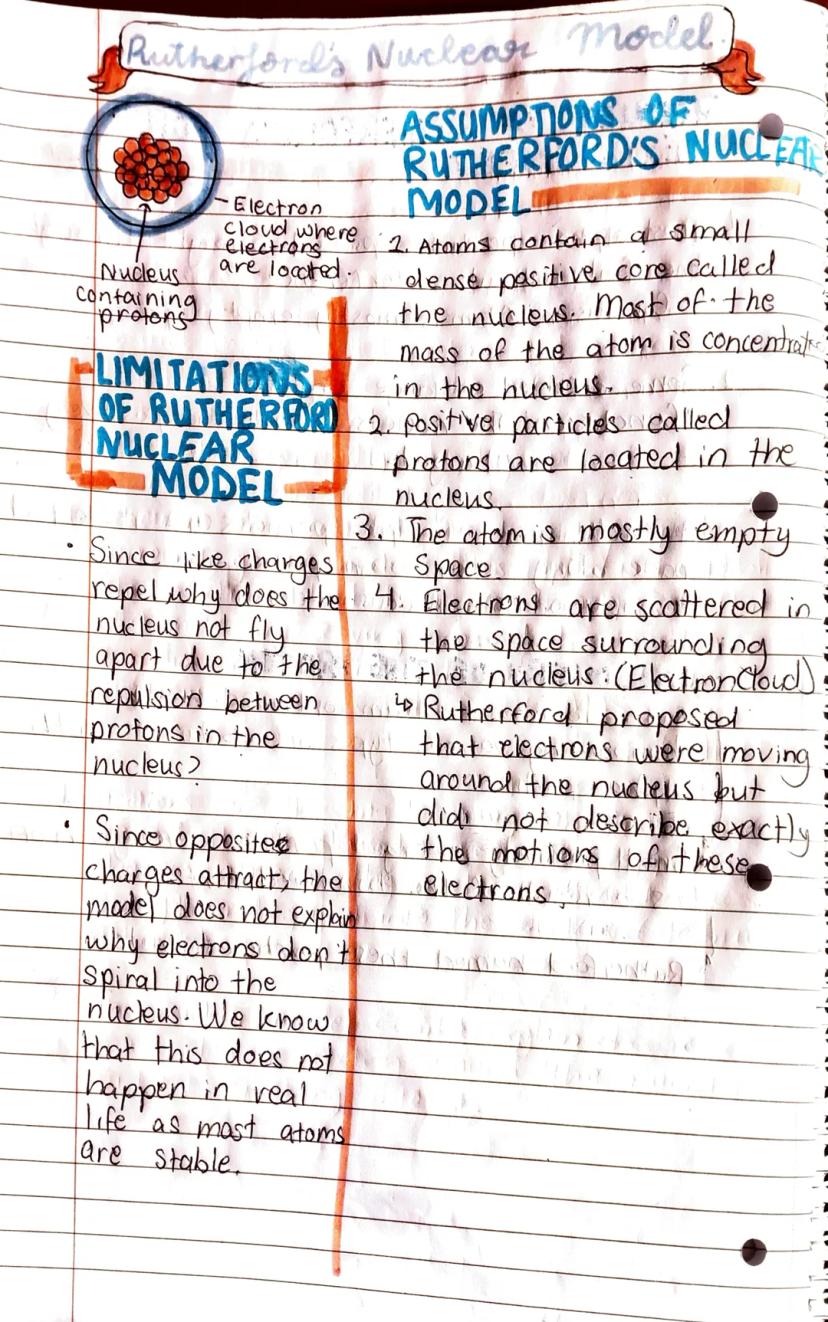 Rutherford's Nuclear Model.
Electron
cloud where
electrons
are located.
Nucleus
containing
protons
LIMITATIONS
OF RUTHERFORD
NUCLEAR
MODEL
• Since like charges
repel why does the
nucleus not fly
apart due to the
repulsion between
protons in the
nucleus?
• Since opposites
charges attract, the
model does not explain
why electrons don't
spiral into the
nucleus. We know
that this does not
happen in real
life as most atoms
are stable.
ASSUMPTIONS OF
RUTHERFORD'S NUCLEAR
MODEL
1. Atoms contain a small
dense positive core called
the nucleus. Most of the
mass of the atom is
in the nucleus.
2. Positive particles called
protons are located in the
nucleus.
3. The atom is mostly empty
space.
4. Electrons are scattered in
the space surrounding
the nucleus. (Electron Cloud)
↳ Rutherford proposed
that electrons were moving
around the nucleus but
did not describe exactly
the motions of these
electrons.